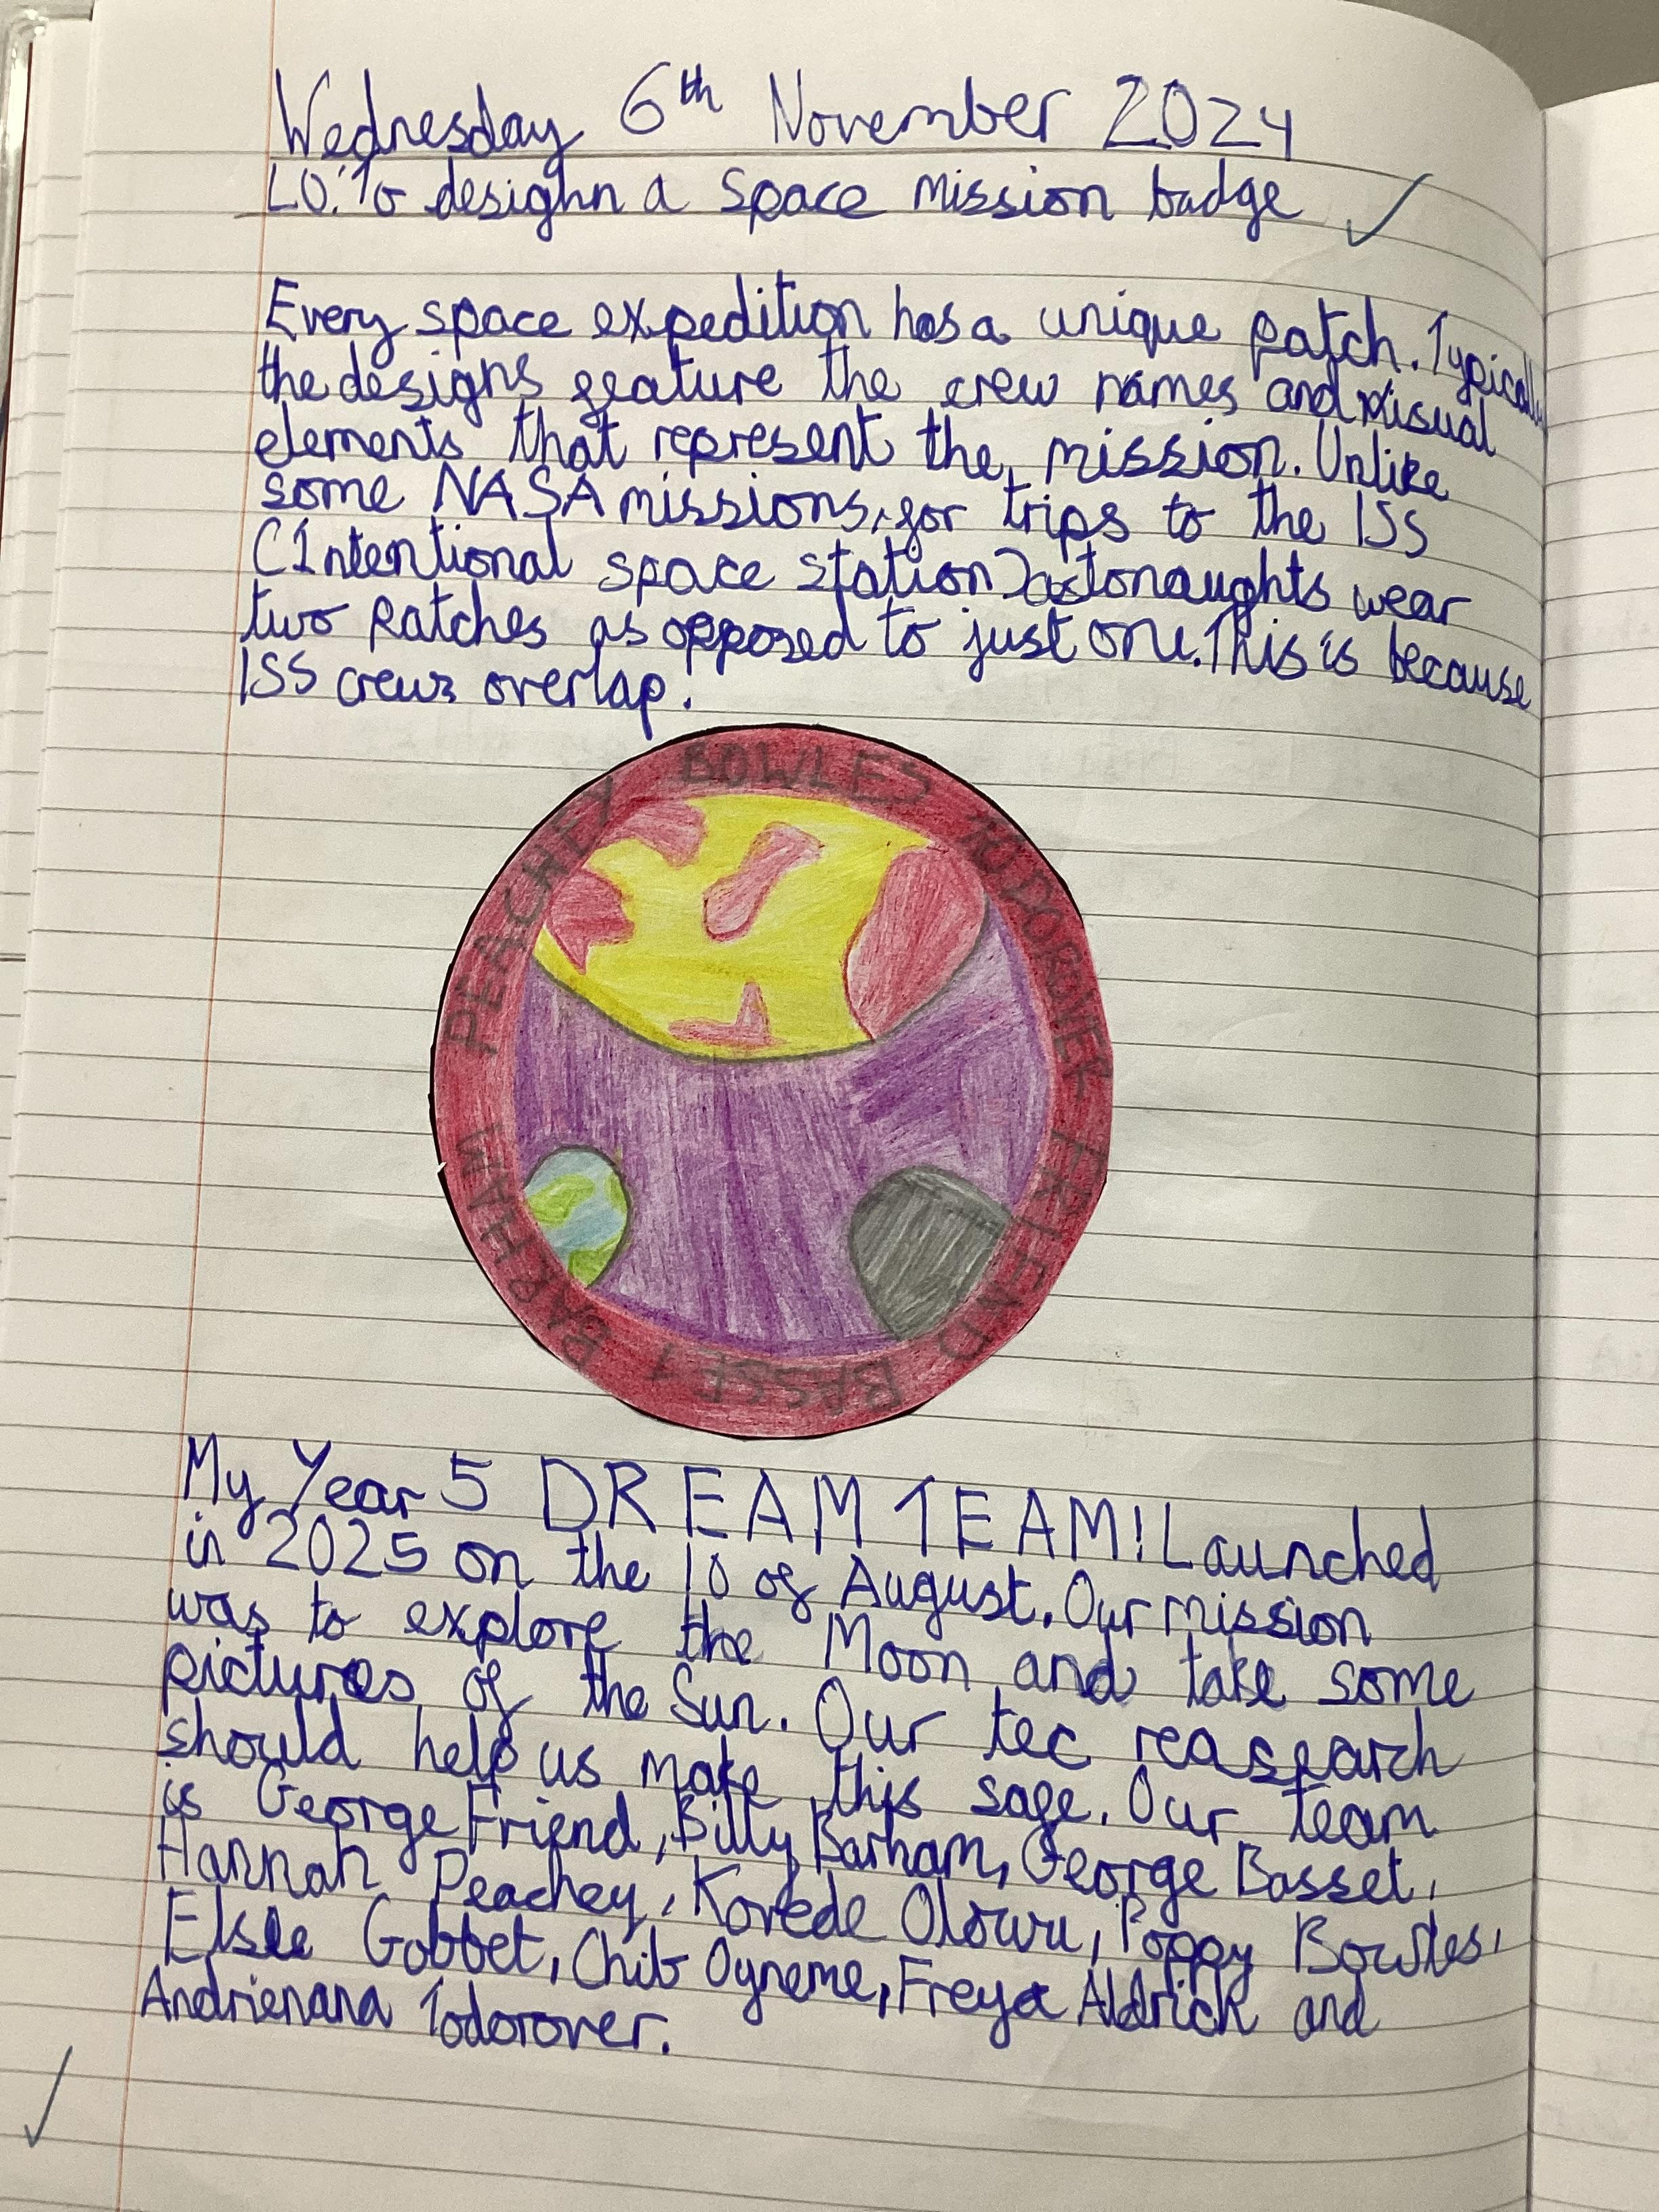 Wednesday 6th November 2024
LO: To desighn a space mission badge
Every space expedition has a unique patch. Typically
the designs feature the crew names and visual
elements that represent the mission. Unlike
some NASA missions, for trips to the ISS
(Intentional space station) astonaughts wear
two patches as opposed to just one. This is because
ISS crews overlap!
PEACHEY BOWLES TODOROVER FRIEND BASSET BARHAM
My Year 5 DREAM TEAM! Launched
in 2025 on the 10 of August. Our mission
was to explore the Moon and take some
pictures of the Sun. Our tec reasearch
should help us make this safe. Our team
is George Friend, Billy Barham, George Basset,
Hannah Peachey, Korede Olowu, Poppy Bowles,
Elsie Gobbet, Chib Oyneme, Freya Aldrick and
Andrienana Todorover.